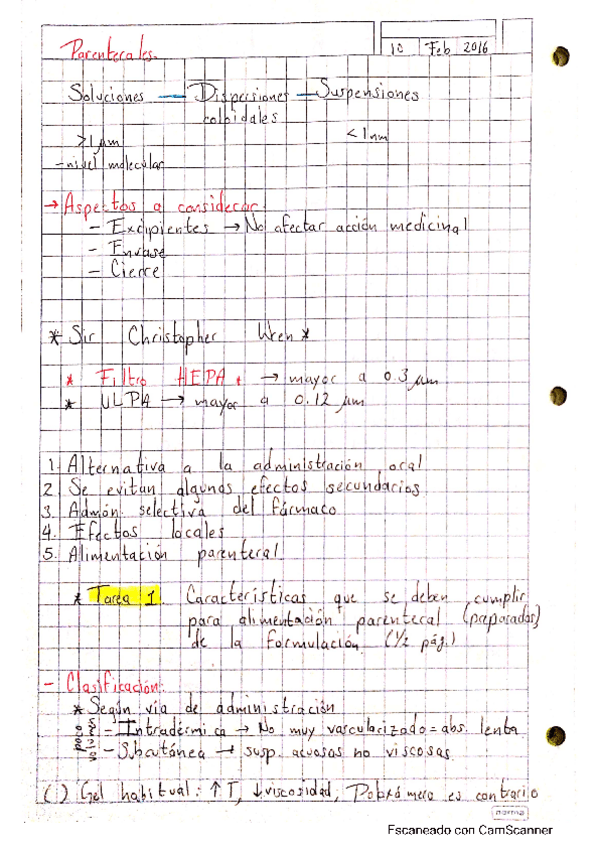 Parenterales.
10 Feb 2016
Soluciones — Dispersiones — Suspensiones
coloidales
>1 µm <1nm
- nivel molecular
→ Aspectos a considerar
- Excipientes → No afectar acción medicinal
- Envase
- Cierre
* Sir Christopher Wren *
* Filtro HEPA → mayor a 0.3 µm
* ULPA → mayor a 0.12 µm
1. Alternativa a la administración oral
2. Se evitan algunos efectos secundarios
3. Admón. selectiva del fármaco
4. Efectos locales
5. Alimentación parenteral
* Tarea 1. Características que se deben cumplir
para alimentación parenteral (preparados)
de la formulación. (1/2 pág.)
- Clasificación:
* Según vía de administración
poco volumen
- Intradérmica → No muy vascularizado = abs. lenta
- Subcutánea → susp. acuosas no viscosas
( ) Gel habitual: ↑T, ↓viscosidad; es contrario
norma
Escaneado con CamScanner